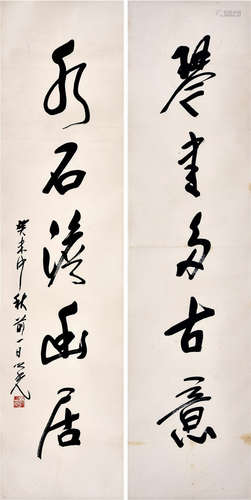 琴書多古意
水石澹幽居
癸未中秋前一日